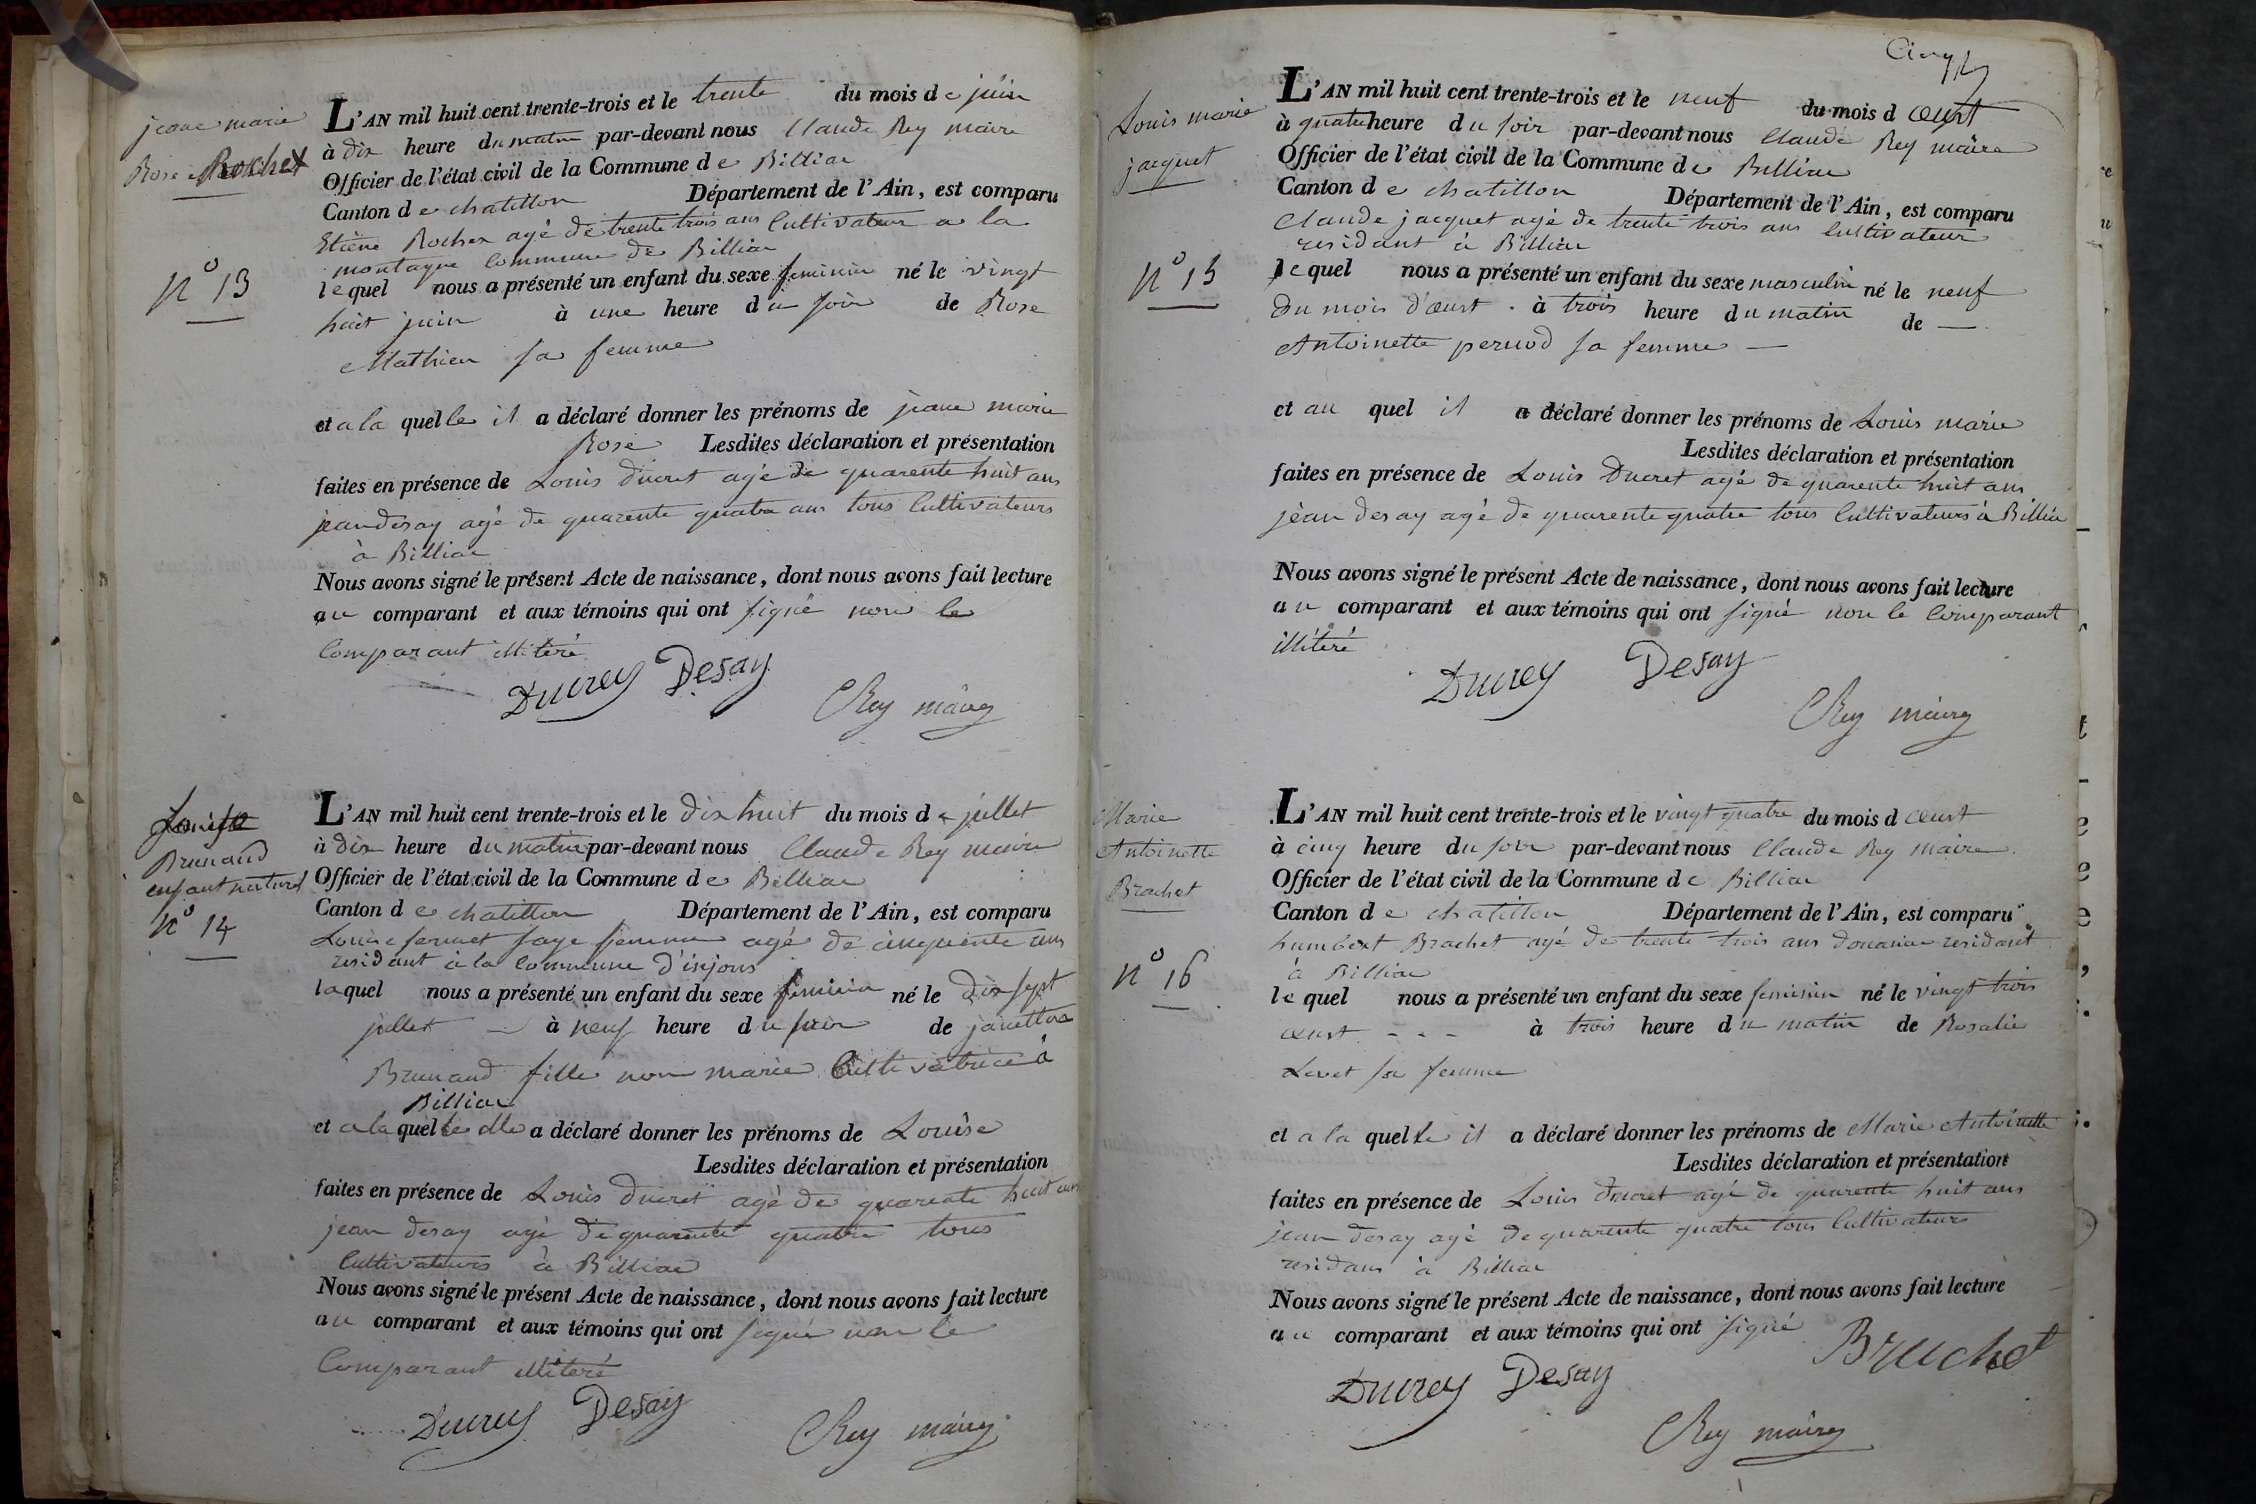 jeane marie
Rose Rochex
N° 13
L'AN mil huit cent trente-trois et le trente du mois de juin
à dix heure du matin par-devant nous Claude Rey maire
Officier de l'état civil de la Commune de Billiac
Canton de chatillon Département de l'Ain, est comparu
Etiene Rochex agé de trente trois ans Cultivateur a la
montagne Commune de Billiac
lequel nous a présenté un enfant du sexe feminin né le vingt
huit juin à une heure du soir de Rose
Mathieu sa femme
et a la quelle il a déclaré donner les prénoms de jeane marie
Rose Lesdites déclaration et présentation
faites en présence de Louis ducret agé de quarente huit ans
jean desay agé de quarente quatre ans tous Cultivateurs
à Billiac
Nous avons signé le présent Acte de naissance, dont nous avons fait lecture
au comparant et aux témoins qui ont signé non le
Comparant illitéré
Ducrey Desay
CRey maire
Louise
Brunand
enfant naturel
N° 14
L'AN mil huit cent trente-trois et le dix huit du mois de juillet
à dix heure du matin par-devant nous Claude Rey maire
Officier de l'état civil de la Commune de Billiac
Canton de chatillon Département de l'Ain, est comparu
Louise sage femme agé de cinquente ans
residant à la Commune d'injoux
laquel nous a présenté un enfant du sexe feminin né le dix sept
juillet à neuf heure du soir de janette
Brunand fille non marie Cultivatrice à
Billiac
et a la quelle elle a déclaré donner les prénoms de Louise
Lesdites déclaration et présentation
faites en présence de Louis ducret agé de quarente huit ans
jean desay agé de quarente quatre tous
Cultivateurs à Billiac
Nous avons signé le présent Acte de naissance, dont nous avons fait lecture
au comparant et aux témoins qui ont signé non le
Comparant illitéré
Ducrey Desay
CRey maire
Cinq
Louis marie
jacquet
N° 15
L'AN mil huit cent trente-trois et le neuf du mois d'œust
à quatre heure du soir par-devant nous Claude Rey maire
Officier de l'état civil de la Commune de Billiac
Canton de chatillon Département de l'Ain, est comparu
Claude jacquet agé de trente trois ans Cultivateur
residant à Billiac
lequel nous a présenté un enfant du sexe masculin né le neuf
du mois d'œust à trois heure du matin de —
Antoinette pernod sa femme —
et au quel il a déclaré donner les prénoms de Louis marie
Lesdites déclaration et présentation
faites en présence de Louis Ducret agé de quarente huit ans
jean desay agé de quarente quatre tous Cultivateurs à Billiac
Nous avons signé le présent Acte de naissance, dont nous avons fait lecture
au comparant et aux témoins qui ont signé non le Comparant
illitéré
Ducrey Desay
CRey maire
Marie
Antoinette
Brachet
N° 16
L'AN mil huit cent trente-trois et le vingt quatre du mois d œust
à cinq heure du soir par-devant nous Claude Rey maire
Officier de l'état civil de la Commune de Billiac
Canton de chatillon Département de l'Ain, est comparu
humbert Brachet agé de trente trois ans douanier residant
à Billiac
lequel nous a présenté un enfant du sexe feminin né le vingt trois
œust - - - à trois heure du matin de Rosalie
Levet sa femme
et a la quelle il a déclaré donner les prénoms de Marie Antoinette
Lesdites déclaration et présentation
faites en présence de Louis ducret agé de quarente huit ans
jean desay agé de quarente quatre tous Cultivateurs
residans à Billiac
Nous avons signé le présent Acte de naissance, dont nous avons fait lecture
au comparant et aux témoins qui ont signé
Brachet
Ducrey Desay
CRey maire